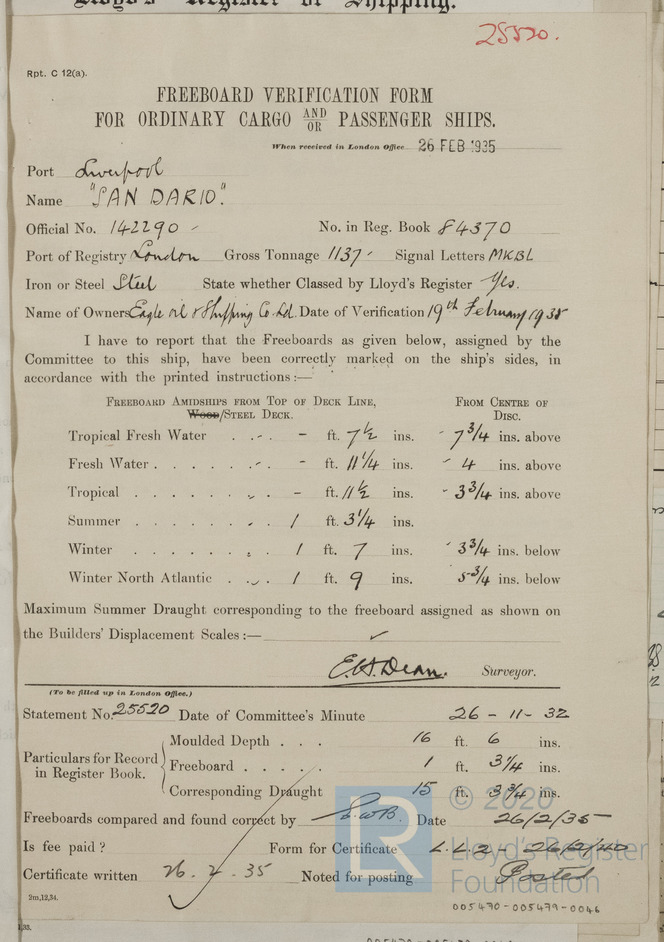 Lloyd's Register of Shipping.
25520.
Rpt. C 12(a).
FREEBOARD VERIFICATION FORM
FOR ORDINARY CARGO AND/OR PASSENGER SHIPS.
When received in London Office 26 FEB 1935
Port Liverpool
Name "SAN DARIO".
Official No. 142290 - No. in Reg. Book 84370
Port of Registry London Gross Tonnage 1137 - Signal Letters MKBL
Iron or Steel Steel State whether Classed by Lloyd's Register Yes.
Name of Owners Eagle oil & Shipping Co. Ld. Date of Verification 19th February 1935
I have to report that the Freeboards as given below, assigned by the
Committee to this ship, have been correctly marked on the ship's sides, in
accordance with the printed instructions :—
FREEBOARD AMIDSHIPS FROM TOP OF DECK LINE, FROM CENTRE OF
WOOD/STEEL DECK. DISC.
Tropical Fresh Water - ft. 7 1/2 ins. 7 3/4 ins. above
Fresh Water - ft. 11 1/4 ins. 4 ins. above
Tropical - ft. 11 1/2 ins. 3 3/4 ins. above
Summer 1 ft. 3 1/4 ins.
Winter 1 ft. 7 ins. 3 3/4 ins. below
Winter North Atlantic 1 ft. 9 ins. 5 3/4 ins. below
Maximum Summer Draught corresponding to the freeboard assigned as shown on
the Builders' Displacement Scales :— ✓
E.H. Dean. Surveyor.
(To be filled up in London Office.)
Statement No. 25520 Date of Committee's Minute 26 - 11 - 32
Particulars for Record in Register Book.
Moulded Depth . . . 16 ft. 6 ins.
Freeboard . . . . . 1 ft. 3 1/4 ins.
Corresponding Draught 15 ft. 3 3/4 ins.
© 2020
Freeboards compared and found correct by Date 26/2/35
Is fee paid ? Form for Certificate L.L.2 - 26/2/40
Lloyd's Register
Certificate written 26.2.35 Noted for posting Posted
Foundation
2m,12,34.
005470-005479-0046